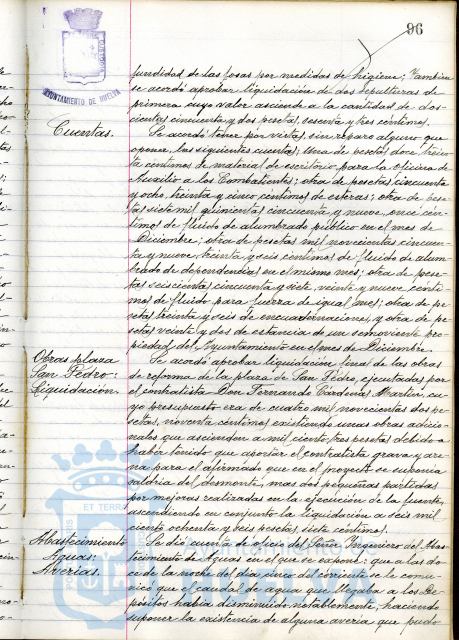 96
AYUNTAMIENTO DE HUELVA
fundidad de las fosas por medidas de higiene; tambien
se acordó aprobar liquidación de dos sepulturas de
primera cuyo valor asciende a la cantidad de dos-
cientas cincuenta y dos pesetas, sesenta y tres centimos.
Cuentas.
Se acordó tener por vistas, sin reparo alguno que
oponer, las siguientes cuentas; Una de pesetas doce, trein-
ta centimos de material de escritorio para la oficina de
Auxilio a los Combatientes; otra de pesetas, cincuenta
y ocho, treinta y cinco centimos de esteras; otra de pese-
tas siete mil quinientas cincuenta y nueve, once cen-
timos de fluido de alumbrado público en el mes de
Diciembre; otra de pesetas mil novecientas cincuen-
ta y nueve, treinta y seis centimos de fluido de alum-
brado de dependencias en el mismo mes; otra de pese-
tas seiscientas cincuenta y siete, veinte y nueve centi-
mos de fluido para fuerza de igual mes; otra de pe-
setas treinta y seis de encuadernaciones, y otra de pe-
setas veinte y dos de estancia de un semoviente pro-
piedad del Ayuntamiento en el mes de Diciembre.
Obras plaza
San Pedro:
Liquidación.
Se acordó aprobar liquidación final de las obras
de reforma de la plaza de San Pedro, ejecutadas por
el contratista Don Fernando Cárdenas Martin, cu-
yo presupuesto era de cuatro mil novecientas dos pe-
setas, noventa centimos existiendo unas obras adicio-
nales que ascienden a mil ciento tres pesetas debido a
haber tenido que aportar el contratista grava y are-
na para el afirmado que en el proyecto se suponia
saldria del desmonte, mas dos pequeñas partidas
por mejoras realizadas en la ejecución de la fuente,
ascendiendo en conjunto la liquidación a seis mil
ciento ochenta y seis pesetas, siete centimos.
Abastecimiento
Aguas:
Averias.
Se dió cuenta de oficio del Señor Ingeniero del Abas-
tecimiento de Aguas en el que se expone: que a las do-
ce de la noche del dia cinco del corriente se le comu-
nicó que el caudal de agua que llegaba a los De-
pósitos habia disminuido notablemente, haciendo
suponer la existencia de alguna averia que pudo